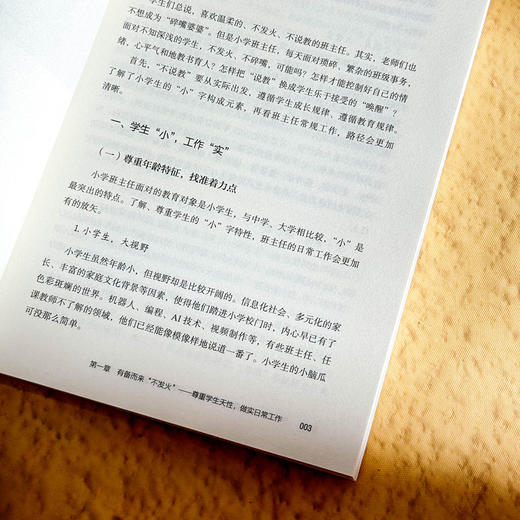 学生们总说，喜欢温柔的、不发火、不说教的班主任。其实，老师们也
不想成为“碎嘴婆婆”。但是小学班主任，每天面对琐碎、繁杂的班级事务，
面对不知深浅的学生，不发火、不碎嘴，可能吗？怎样才能控制好自己的情
绪，心平气和地教书育人？怎样把“说教”换成学生乐于接受的“唤醒”？
首先，“不说教”要从实际出发，遵循学生成长规律、遵循教育规律。
了解了小学生的“小”字构成元素，再看班主任常规工作，路径会更加
清晰。
一、学生“小”，工作“实”
（一）尊重年龄特征，找准着力点
小学班主任面对的教育对象是小学生，与中学、大学相比较，“小”是
最突出的特点。了解、尊重学生的“小”字特性，班主任的日常工作会更加
有的放矢。
1. 小学生，大视野
小学生虽然年龄小，但视野却是比较开阔的。信息化社会、多元化的家
长、丰富的家庭文化背景等因素，使得他们踏进小学校门时，内心早已有了
色彩斑斓的世界。机器人、编程、AI 技术、视频制作等，有些班主任、任
课教师不了解的领域，他们已经能像模像样地说道一番了。小学生的小脑瓜
可没那么简单。
第一章 有备而来“不发火”——尊重学生天性，做实日常工作 003